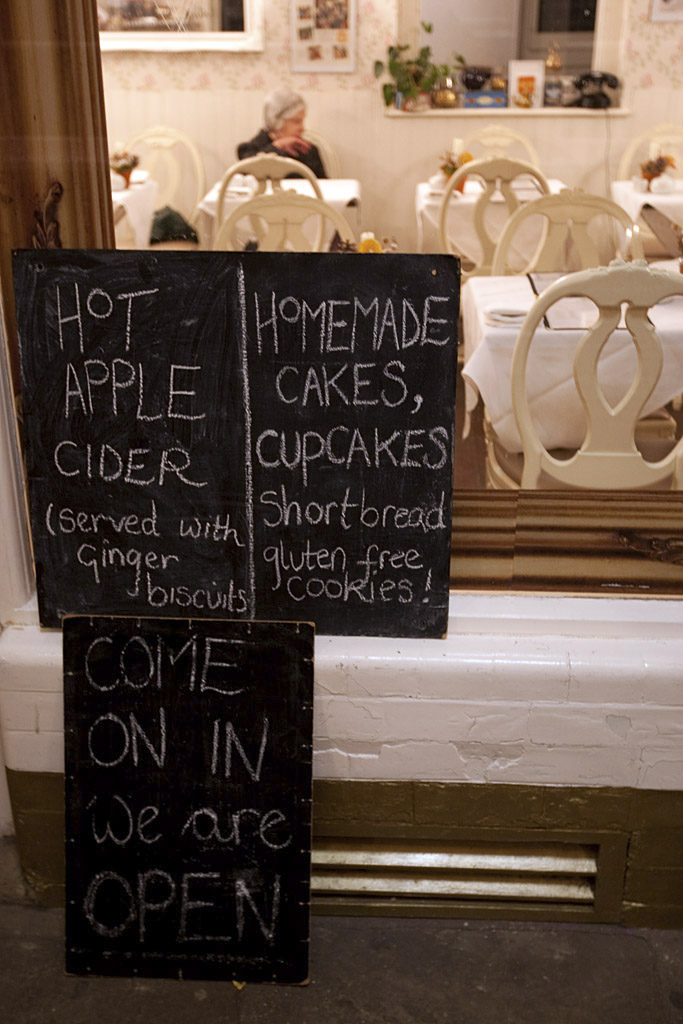 HOT
APPLE
CIDER
(served with
Ginger
biscuits
HOMEMADE
CAKES,
CUPCAKES
Shortbread
gluten free
COOKIES!
COME
ON IN
We are
OPEN